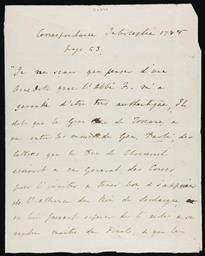 Correspondance Interceptée 1788
Page 53.
"Je ne sais que penser d'une
anecdote que l'Abbé F. m'a
garanti d'être très authentique, Il
dit que le Grand Duc de Toscane, a
eu entre les mains de Gen. Paoli, des
lettres que le Duc de Choiseuil
écrivoit a ce General des Corses,
pour l'inviter a tenir bon &
de l'alliance du Roi de Sardaigne,
en lui faisant espérer de l'aider a se
rendre maitre de Finale, & que l'on